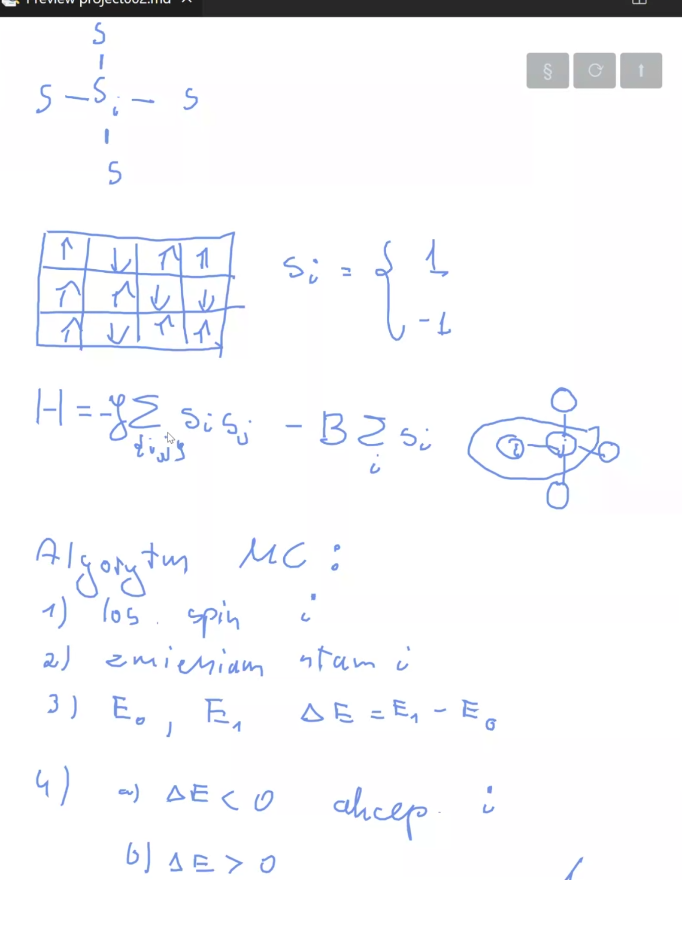 Preview project002.md
S
S – Sᵢ – S
S
↑ ↓ ↑ ↑
↑ ↑ ↓ ↓
↑ ↓ ↑ ↑
sᵢ = { 1
-1
H = -J Σ sᵢ sⱼ - B Σ sᵢ
{i,j} i
i j
Algorytm MC:
1) los. spin i
2) zmieniam stam i
3) E₀, E₁ ΔE = E₁ - E₀
4) a) ΔE < 0 akcep. i
b) ΔE > 0